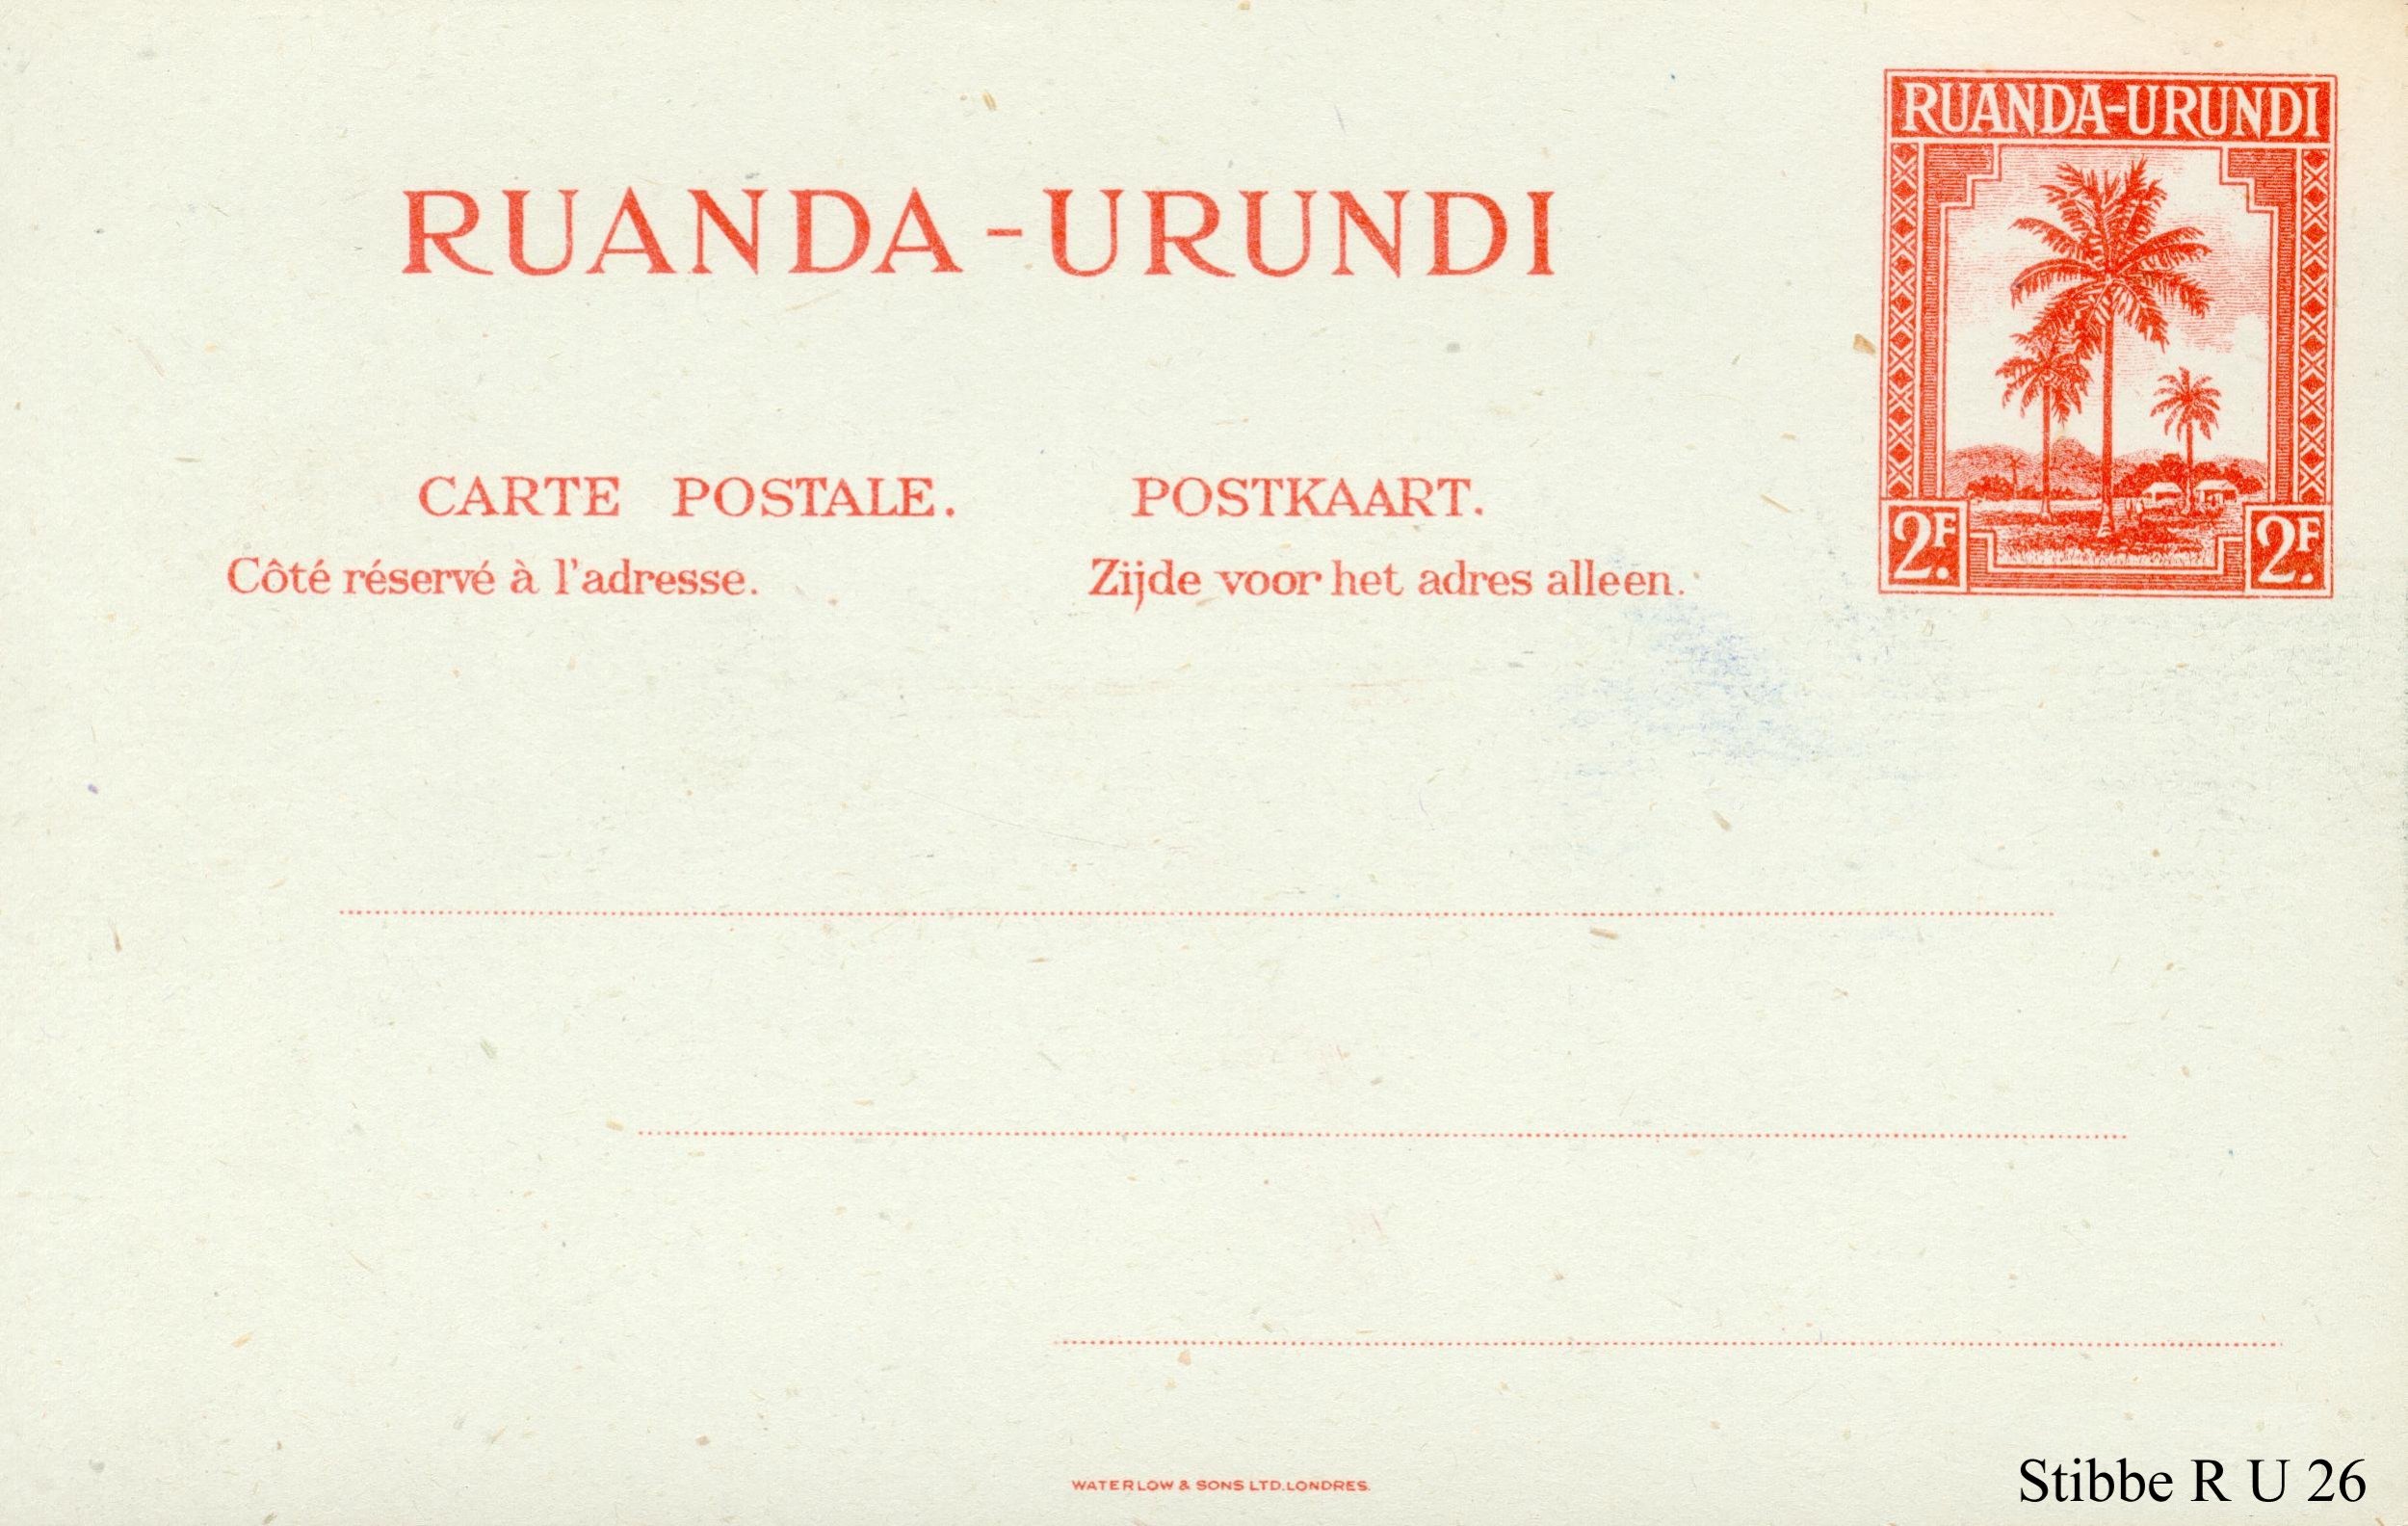 RUANDA-URUNDI
RUANDA-URUNDI
CARTE POSTALE. POSTKAART.
Côté réservé à l'adresse. Zijde voor het adres alleen.
2F. 2F.
WATERLOW & SONS LTD. LONDRES.
Stibbe R U 26